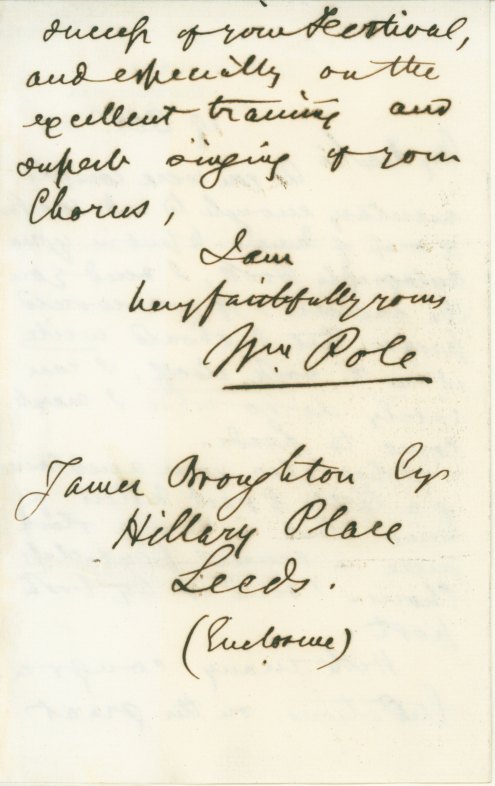 success of your Festival,
and especially on the
excellent training and
superb singing of your
Chorus,
I am
very faithfully yours
Wm Pole
James Broughton Esq
Hillary Place
Leeds.
(Enclosure)